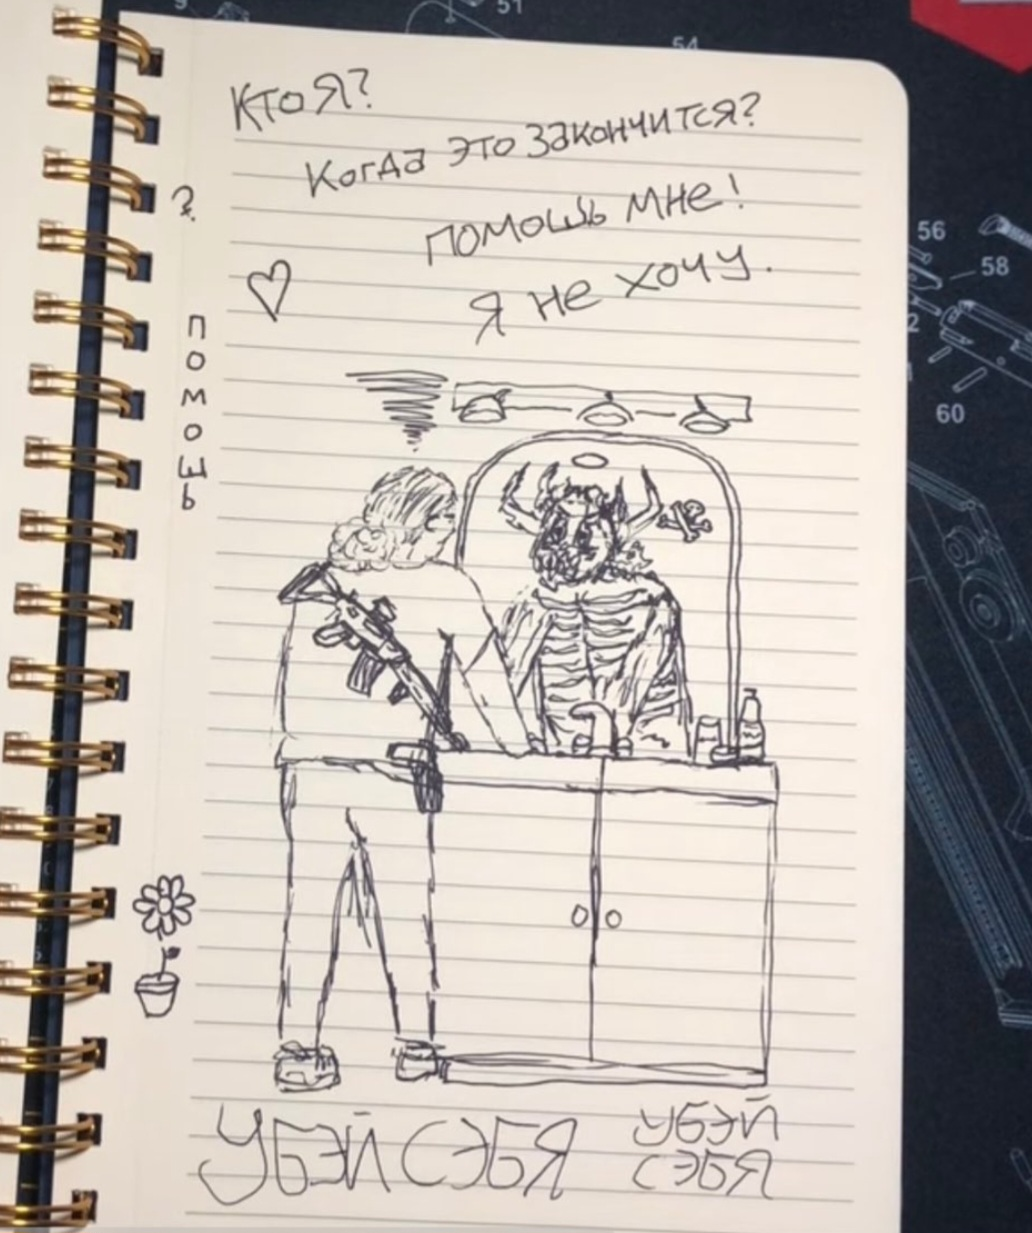 Кто Я?
Когда это закончится?
помошь мне!
Я не хочу.
?
помошь
УБЭЙ СЭБЯ
УБЭЙ
СЭБЯ
51
54
56
58
60